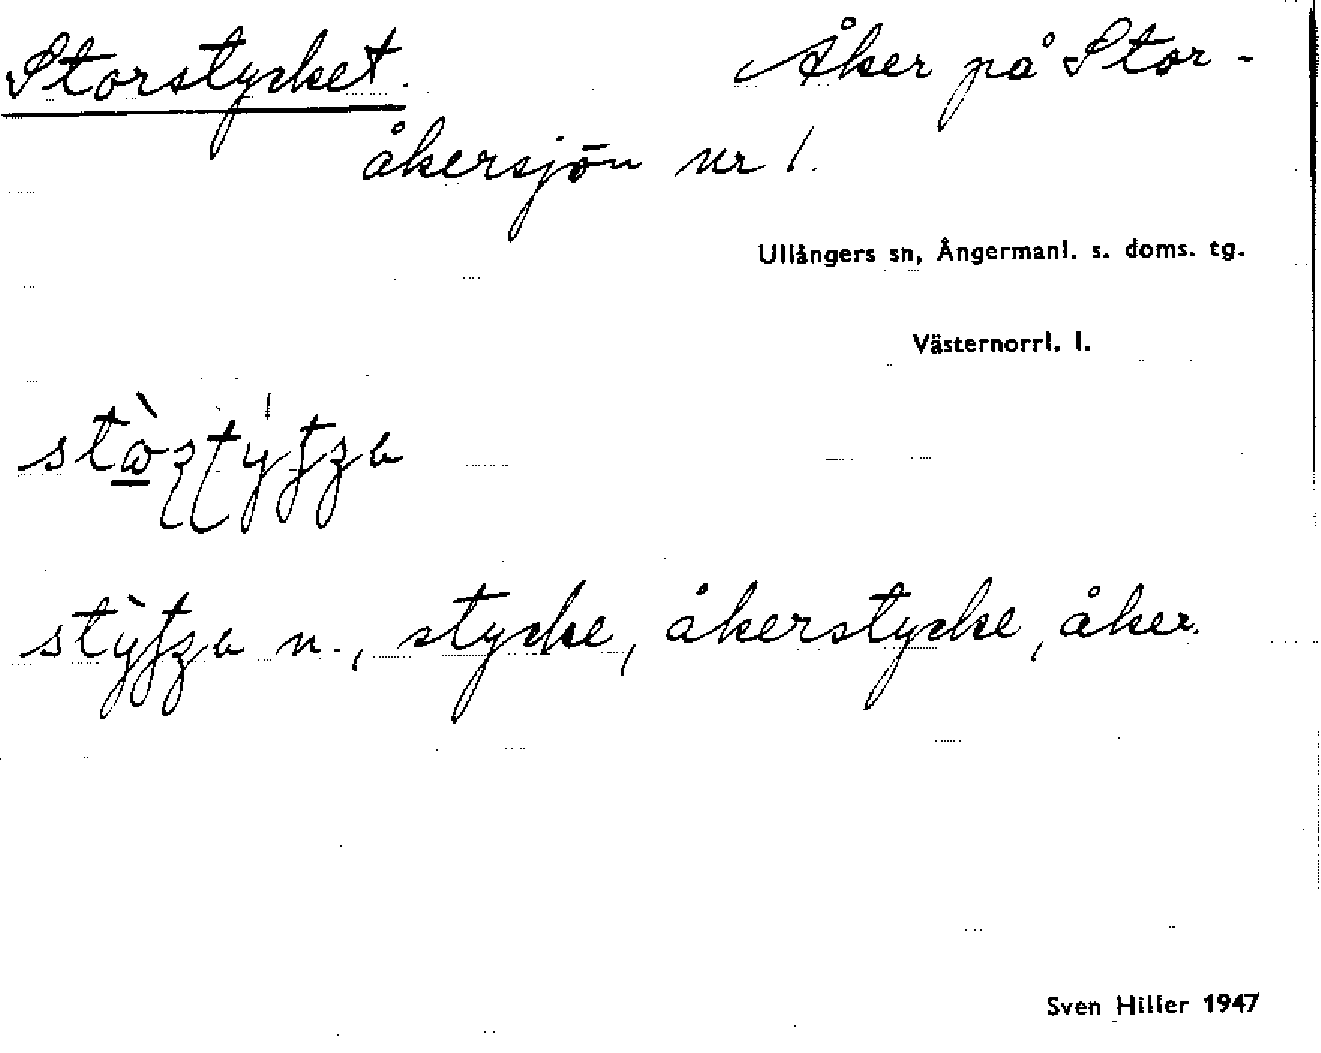 Storstycket. Åker på Stor-
åkersjön nr 1.
Ullångers sn, Ångermanl. s. doms. tg.
Västernorrl. l.
n., stycke, åkerstycke, åker.
Sven Hiller 1947